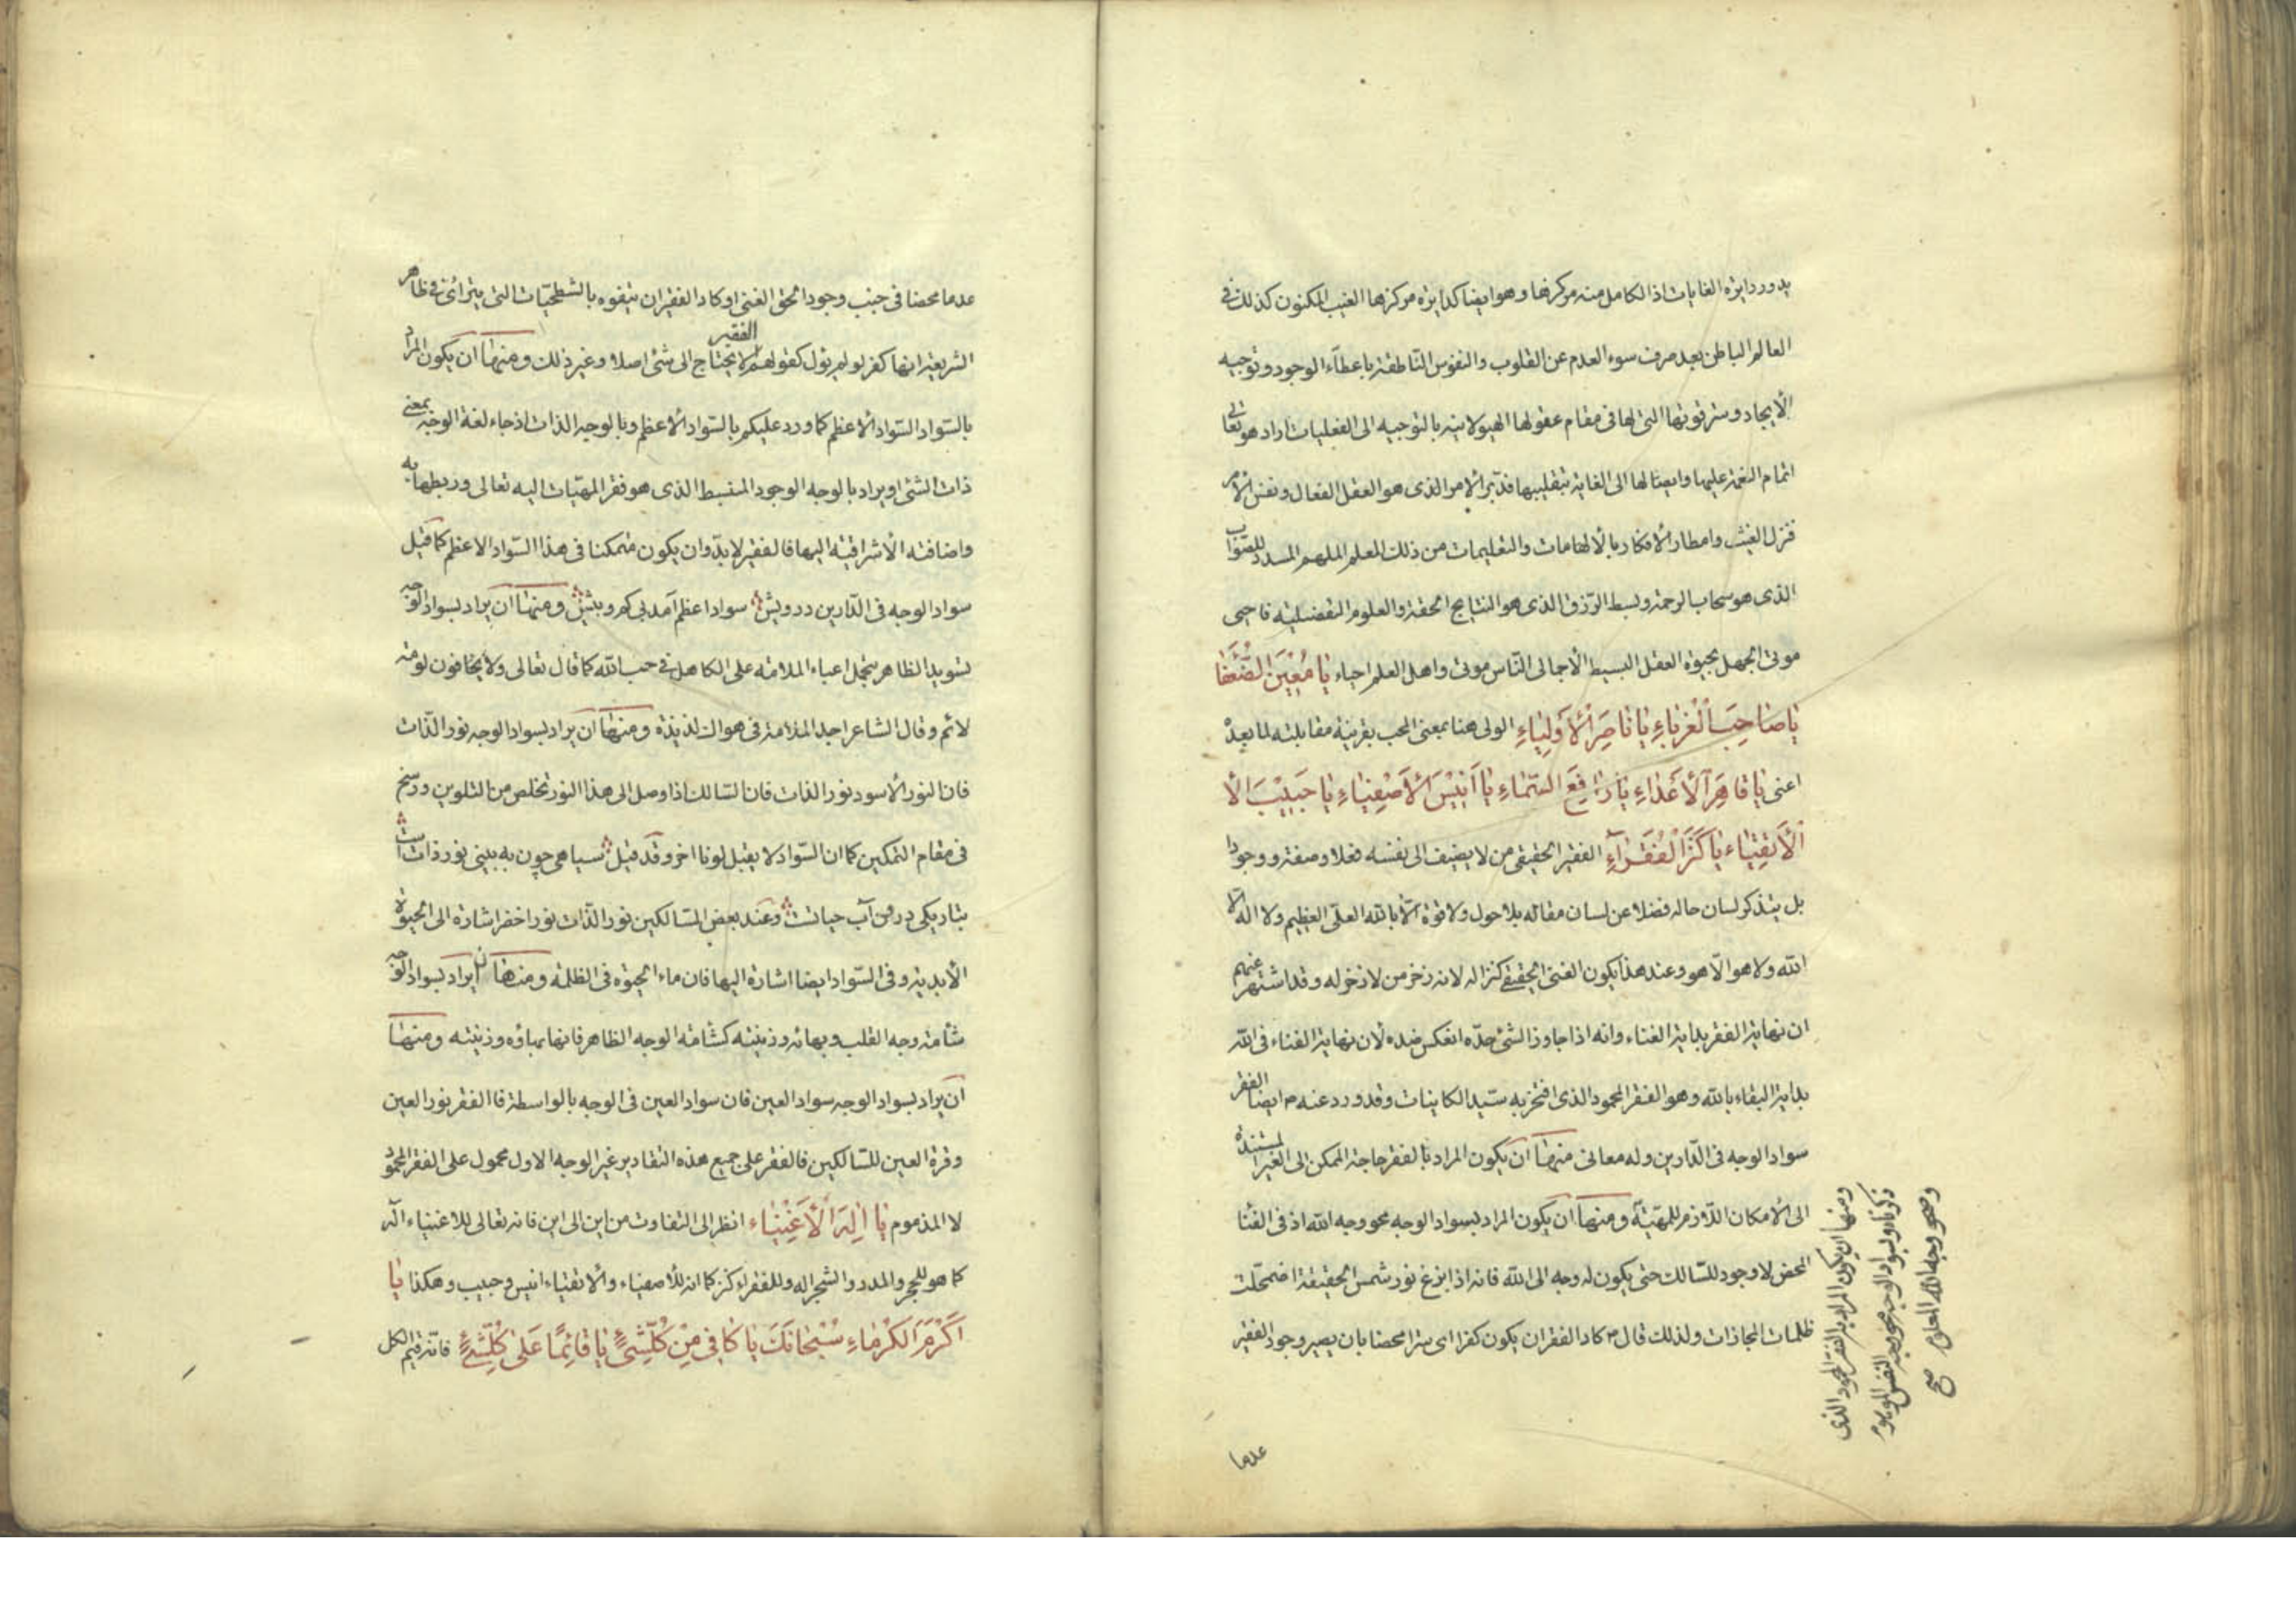 يدور دايرة الغايات اذ الكامل منه مركزها وهو ايضا كدايرة مركزها الغيب المكنون كذلك فى
العالم الباطن بعد صرف سوء العدم عن القلوب والنفوس الناطقة باعطاء الوجود وتوجيه
الايجاد وستر قوتها التى لها فى مقام عقولها الهيولانيه بالتوجيه الى الفعليات اراد هو تعالى
اتمام النعمة عليها وايصالها الى الغاية بتقليبها فدبر الامر الذى هو العقل الفعال ونفس الامر
فنزل الغيث وامطار الافكار بالالهامات والتعليمات من ذلك المعلم الملهم المسدد للصواب
الذى هو سحاب الرحمة وبسط الرزق الذى هو النتايج الحقة والعلوم التفضيليه فاحيى
موتى الجهل بحيوة العقل البسيط الاجمالى الناس موتى واهل العلم احياء يَا مُعِينَ الضُّعَفَا
يَا صَاحِبَ الْغُرَبَاءِ يَا نَاصِرَ الْأَوْلِيَاءِ الولى هنا بمعنى المحب بقرينة مقابلته لما بعده
اعنى يَا قَاهِرَ الْأَعْدَاءِ يَا رَافِعَ السَّمَاءِ يَا أَنِيسَ الْأَصْفِيَاءِ يَا حَبِيبَ الْأَ
الْأَتْقِيَاء يَا كَنْزَ الْفُقَرَاءِ الفقير الحقيقى من لا يضيف الى نفسه فعلا وصفة ووجودا
بل يتذكر لسان حاله فضلا عن لسان مقاله بلا حول ولا قوة الا بالله العلى العظيم ولا اله الا
الله ولا هو الا هو وعند هذا يكون الغنى الحقيقى كنزا له لانه ذخر من لا ذخر له وقد اشتهر عنهم
ان نهاية الفقر بداية الغناء وانه اذا جاوز الشئ حده انعكس ضده لان نهاية الفناء فى الله
بداية البقاء بالله وهو الفقر المحمود الذى افتخر به سيد الكاينات وقد ورد عنه ص ايضا الفقر
سواد الوجه فى الدارين وله معانى منها ان يكون المراد بالفقر حاجة الممكن الى الغير المستندة
الى الامكان اللازم للمهيّة ومنها ان يكون المراد بسواد الوجه محو وجه الله اذ فى الفنا
المحض لا وجود للسالك حتى يكون له وجه الى الله فانه اذا بزغ نور شمس الحقيقة اضمحلت
ظلمات المجازات ولذلك قال ص كاد الفقر ان يكون كفرا اى سترا محضا بان يصير وجود الفقير
ومنها ان يكون المراد بالفقر المحمود الذى
ذكرناه وبسواد الوجه محو وجه النفس الموهوم
وصحو وجه الله المعلوم صح
عدما
عدما محضا فى جنب وجود الحق الغنى او كاد الفقير ان يتفوه بالشطحيات التى يترائى فى ظاهر
الشريعة انها كفر لو لم يؤل كقولهم الفقير لا يحتاج الى شئ اصلا وغير ذلك ومنها ان يكون المراد
بالسواد السواد الاعظم كما ورد عليكم بالسواد الاعظم وبالوجه الذات اذ جاء لغة الوجه بمعنى
ذات الشئ او يراد بالوجه الوجود المنبسط الذى هو فقر المهيّات اليه تعالى وربطها به
واضافته الاشراقيته اليها فالفقير لا بد وان يكون متمكنا فى هذا السواد الاعظم كما قيل
سواد الوجه فى الدارين درويش سواد اعظم آمد بى كم و بيش ومنها ان يراد بسواد الوجه
تسويد الظاهر بتحمل اعباء الملامة على الكاهل فى حب الله كما قال تعالى ولا يخافون لومة
لائم وقال الشاعر اجد الملامة فى هواك لذيذة ومنها ان يراد بسواد الوجه نور الذات
فان النور الاسود نور الذات فان السالك اذا وصل الى هذا النور تخلص من التلوين ورسخ
فى مقام التمكين كما ان السواد لا يقبل لونا اخر وقد قيل سياهى چون به بينى نور ذات است
بتاريكى درون آب حياتست وعند بعض السالكين نور الذات نور اخضر اشارة الى الحيوة
الابدية وفى السواد ايضا اشارة اليها فان ماء الحيوة فى الظلمة ومنها ان يراد بسواد الوجه
شأمة وجه القلب وبهائه وزينته كشامة الوجه الظاهر فانها بهاؤه وزينته ومنها
ان يراد بسواد الوجه سواد العين فان سواد العين فى الوجه بالواسطة فالفقر نور العين
وقرة العين للسالكين فالفقر على جميع هذه التقادير غير الوجه الاول محمول على الفقر المحمود
لا المذموم يَا إِلَهَ الْأَغْنِيَاء انظر الى التفاوت من اين الى اين فانه تعالى للاغنياء اله
كما هو للحجر والمدر والشجر اله وللفقراء كنز كما انه للأصفياء والاتقياء انيس وحبيب وهكذا يَا
أَكْرَمَ الْكُرَمَاءِ سُبْحَانَكَ يَا كَافِى مِنْ كُلِّ شَىْءٍ يَا قَائِمًا عَلَى كُلِّ شَىْءٍ فانه قيم الكل